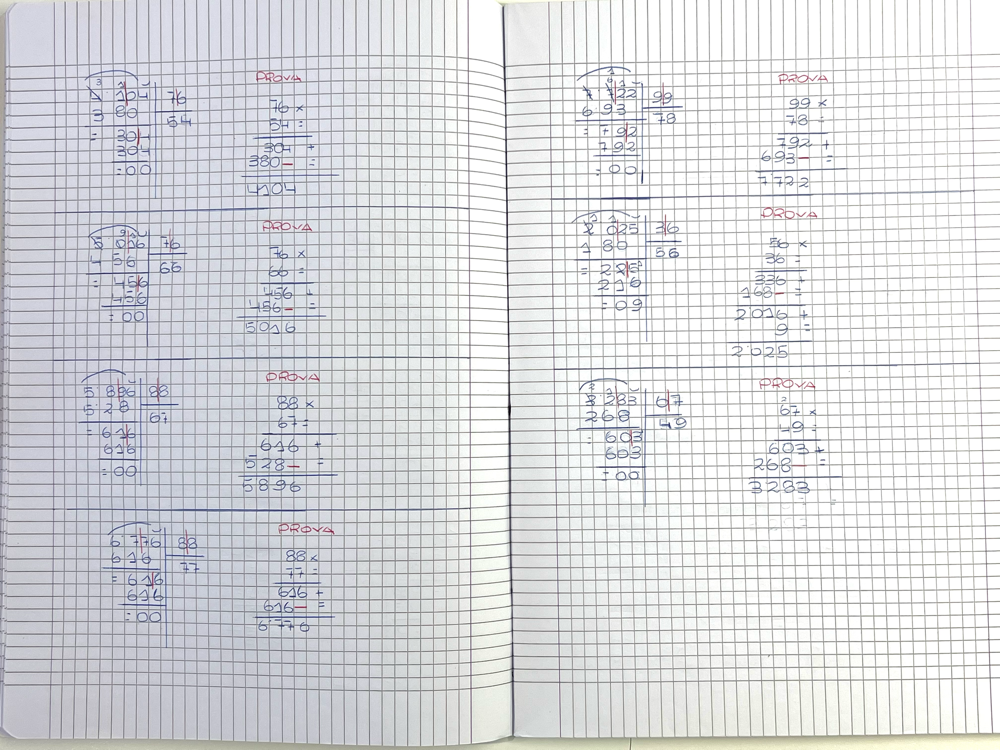 4.104 76
3 80 54
= 304
304
= 00
PROVA
76 ×
54 =
304 +
380– =
4104
5 016 76
4 56 66
= 456
456
= 00
PROVA
76 ×
66 =
456 +
456– =
5016
5.896 88
5.28 67
= 616
616
= 00
PROVA
88 ×
67 =
616 +
528– =
5896
6.776 88
616 77
= 616
616
= 00
PROVA
88 ×
77 =
616 +
616– =
6.776
7.722 99
6 93 78
= 792
792
= 00
PROVA
99 ×
78 =
792 +
693– =
7722
2 025 36
1 80 56
= 225
216
= 09
PROVA
56 ×
36 =
336 +
168– =
2016 +
9 =
2.025
3.283 67
268 49
= 603
603
= 00
PROVA
67 ×
49 =
603 +
268– =
3283